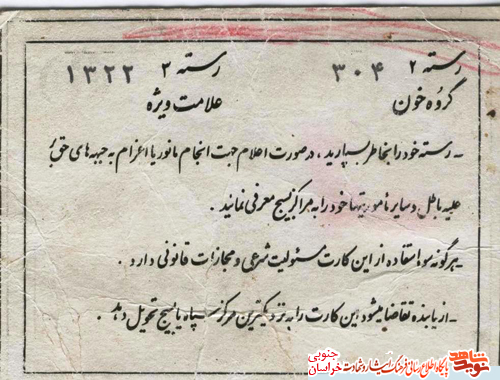 رسته ۲ ۳۰۴ رسته ۳ ۱۳۲۲
گروه خون علامت ویژه
ـ رسته خود را بخاطر بسپارید ، در صورت اعلام جهت انجام مانور یا اعزام به جبهه های حق بر
علیه باطل و سایر مأموریتها خود را به مراکز بسیج معرفی نمائید .
ـ هرگونه سوء استفاده از این کارت مسئولیت شرعی و مجازات قانونی دارد .
ـ از یابنده تقاضا میشود این کارت را به نزدیکترین مرکز سپاه یا بسیج تحویل دهد .
پایگاه اطلاع رسانی فرهنگ ایثار و شهادت
خراسان جنوبی
نوید شاهد